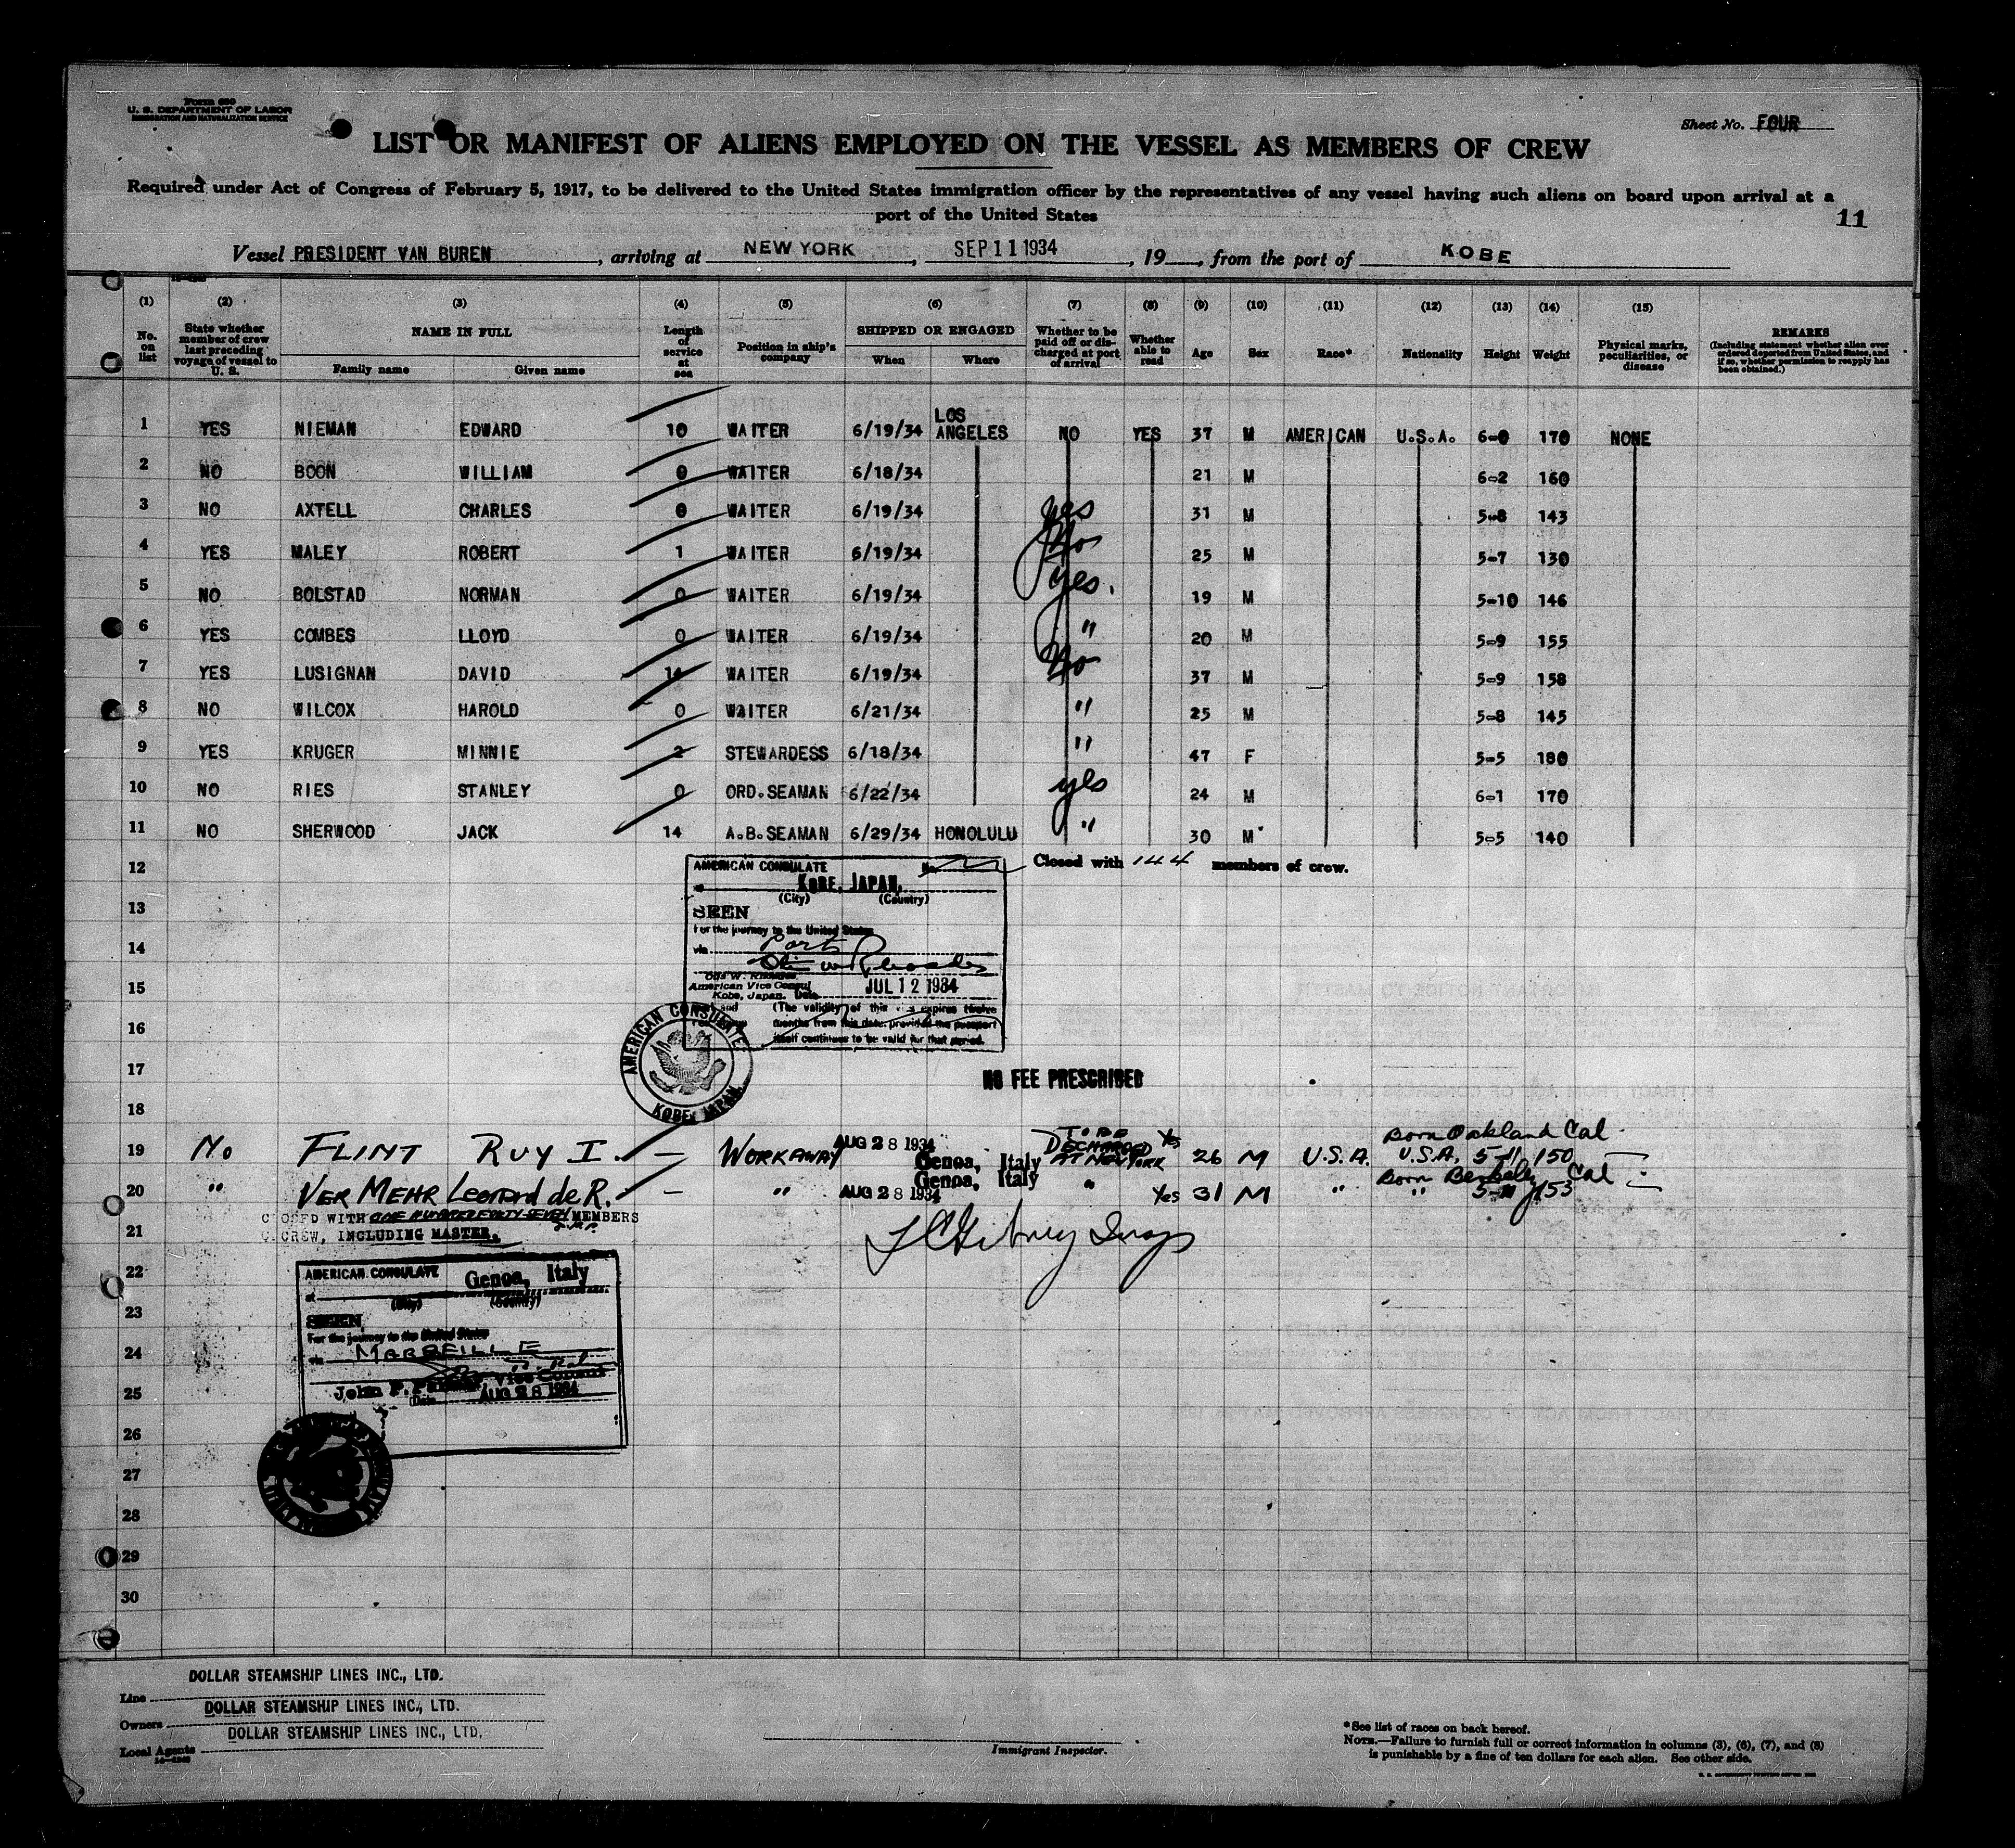 Form 680
U. S. DEPARTMENT OF LABOR
IMMIGRATION AND NATURALIZATION SERVICE
Sheet No. FOUR
LIST OR MANIFEST OF ALIENS EMPLOYED ON THE VESSEL AS MEMBERS OF CREW
Required under Act of Congress of February 5, 1917, to be delivered to the United States immigration officer by the representatives of any vessel having such aliens on board upon arrival at a
port of the United States
11
Vessel PRESIDENT VAN BUREN, arriving at NEW YORK, SEP 11 1934, 19, from the port of KOBE
(1) (2) (3) (4) (5) (6) (7) (8) (9) (10) (11) (12) (13) (14) (15)
No. on list
State whether member of crew last preceding voyage of vessel to U. S.
NAME IN FULL
Family name Given name
Length of service at sea
Position in ship's company
SHIPPED OR ENGAGED
When Where
Whether to be paid off or discharged at port of arrival
Whether able to read
Age
Sex
Race*
Nationality
Height
Weight
Physical marks, peculiarities, or disease
REMARKS
(Including statement whether alien ever ordered deported from United States, and if so, whether permission to reapply has been obtained.)
1 YES NIEMAN EDWARD 10 WAITER 6/19/34 LOS ANGELES NO YES 37 M AMERICAN U.S.A. 6-0 170 NONE
2 NO BOON WILLIAM 0 WAITER 6/18/34 21 M 6-2 160
3 NO AXTELL CHARLES 0 WAITER 6/19/34 yes 31 M 5-8 143
4 YES MALEY ROBERT 1 WAITER 6/19/34 No 25 M 5-7 130
5 NO BOLSTAD NORMAN 0 WAITER 6/19/34 yes. 19 M 5-10 146
6 YES COMBES LLOYD 0 WAITER 6/19/34 " 20 M 5-9 155
7 YES LUSIGNAN DAVID 14 WAITER 6/19/34 No 37 M 5-9 158
8 NO WILCOX HAROLD 0 WAITER 6/21/34 " 25 M 5-8 145
9 YES KRUGER MINNIE 2 STEWARDESS 6/18/34 " 47 F 5-5 180
10 NO RIES STANLEY 0 ORD. SEAMAN 6/22/34 yes 24 M 6-1 170
11 NO SHERWOOD JACK 14 A.B. SEAMAN 6/29/34 HONOLULU " 30 M 5-5 140
12
Closed with 144 members of crew.
AMERICAN CONSULATE No.
at KOBE, JAPAN.
(City) (Country)
13
SEEN
For the journey to the United States
14
via Ports
Otis W. Rhoades
15
American Vice Consul
Kobe, Japan. Date JUL 12 1934
(The validity of this visa expires twelve
16
months from this date, provided the passport
itself continues to be valid for that period.
AMERICAN CONSULATE
KOBE, JAPAN.
17
NO FEE PRESCRIBED
18
19 No FLINT RUY I. — WORKAWAY AUG 28 1934 Genoa, Italy TO BE DISCHARGED AT NEW YORK Yes 26 M U.S.A. Born Oakland Cal U.S.A. 5-11 150
20 " VER MEHR Leonard de R. — " AUG 28 1934 Genoa, Italy " Yes 31 M " Born Berkeley Cal " 5-11 153
CLOSED WITH ONE HUNDRED FORTY-SEVEN MEMBERS
21
CREW, INCLUDING MASTER.
22
AMERICAN CONSULATE Genoa, Italy
at
(City) (Country)
23
SEEN
For the journey to the United States
24
via MARSEILLE
25
John P. Vice Consul
Date AUG 28 1934
26
27
28
29
30
DOLLAR STEAMSHIP LINES INC., LTD.
Line
DOLLAR STEAMSHIP LINES INC., LTD.
Owners
DOLLAR STEAMSHIP LINES INC., LTD.
Local Agents
Immigrant Inspector.
*See list of races on back hereof.
NOTE.—Failure to furnish full or correct information in columns (3), (6), (7), and (8)
is punishable by a fine of ten dollars for each alien. See other side.